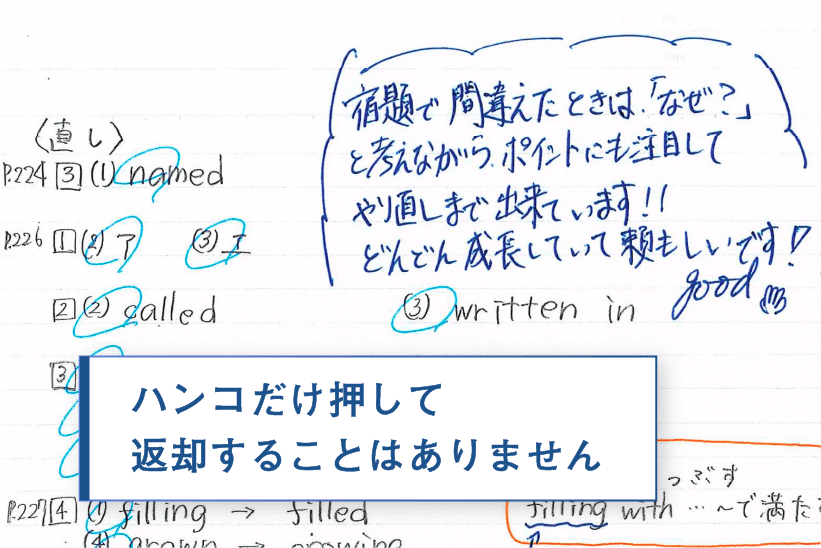 宿題で間違えたときは、「なぜ?」
と考えながら、ポイントにも注目して
やり直しまで出来ています!!
どんどん成長していって頼もしいです!
good
〈直し〉
P.224 3 (1) named
P.226 1 (2) ア (3) エ
2 (2) called (3) written in
3
ハンコだけ押して
返却することはありません
つぶす
P.227 4 (1) filling → filled
filling with … ~で満た
(4) grown → growing